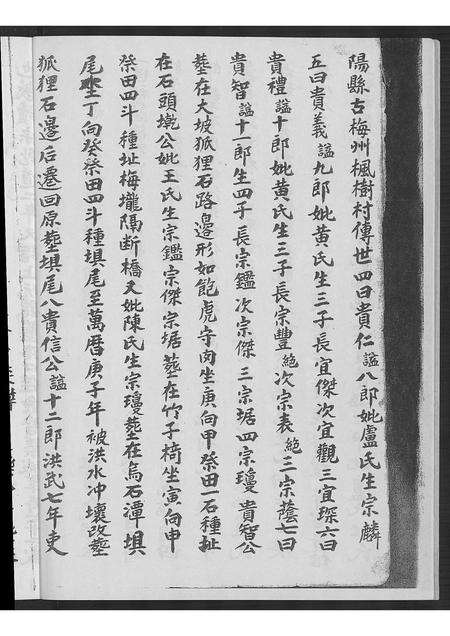 陽縣古梅州楓樹村傳世四曰貴仁諡八郎妣盧氏生宗麟
五曰貴義諡九郎妣黃氏生三子長宜傑次宜觀三宜琛六曰
貴禮諡十郎妣黃氏生三子長宗豐絶次宗表絶三宗蔭七曰
貴智諡十一郎生四子長宗鑑次宗傑三宗琚四宗瓊貴智公
塟在大坡狐狸石路邊形如飽虎寺肉坐庚向甲祭田一石種址
在石頭墘公妣王氏生宗鑑宗傑宗琚塟在竹子椅坐寅向申
祭田四斗種址梅壠隔断橋又妣陳氏生宗瓊塟在烏石潭垻
尾坐丁向癸祭田四斗種垻尾至萬曆庚子年被洪水冲壞改塟
狐狸石邊后遷回原塟垻尾八貴信公諡十二郎洪武七年吏